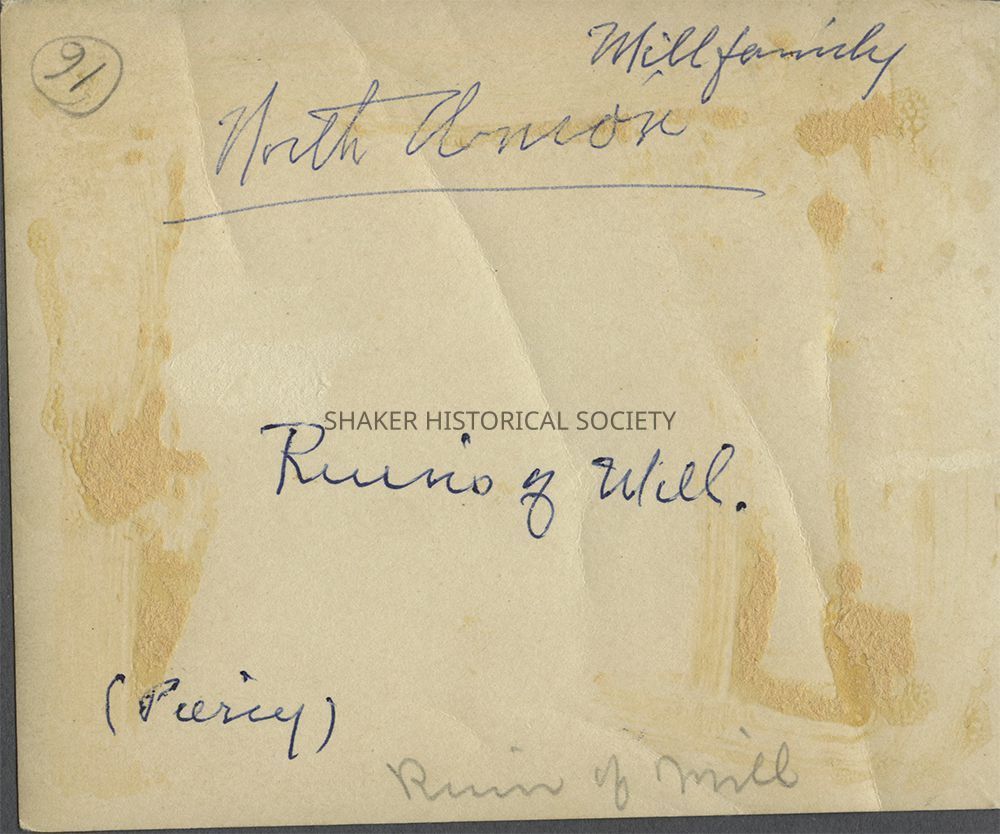 91
Mill family
North Union
SHAKER HISTORICAL SOCIETY
Ruins of Mill.
(Piercy)
Ruin of Mill